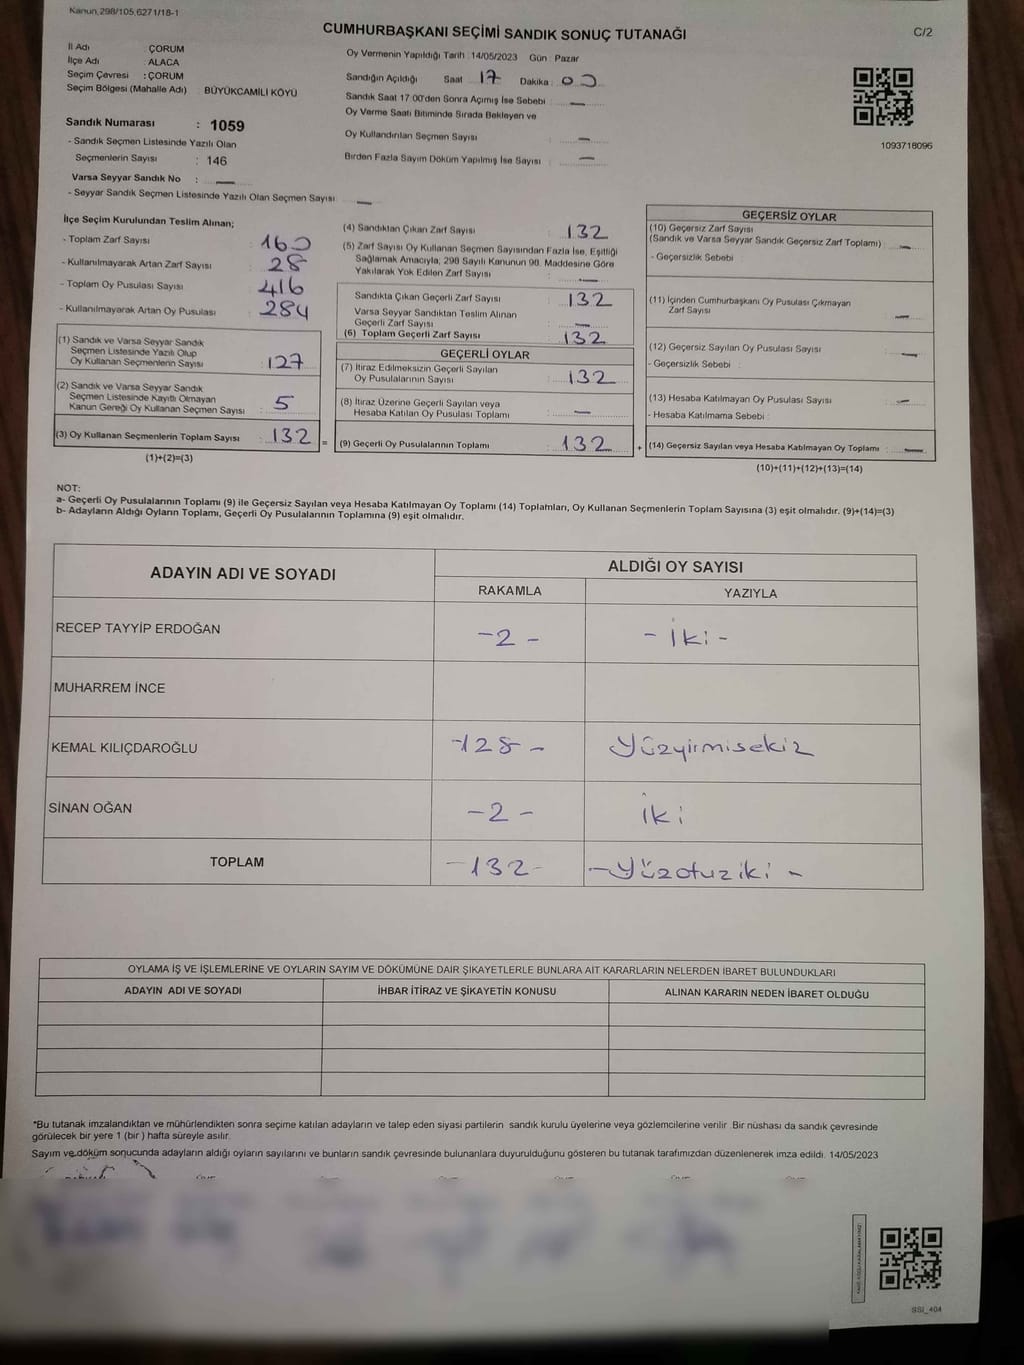 Kanun,298/105,6271/18-1
CUMHURBAŞKANI SEÇİMİ SANDIK SONUÇ TUTANAĞI
C/2
İl Adı : ÇORUM
İlçe Adı : ALACA
Seçim Çevresi : ÇORUM
Seçim Bölgesi (Mahalle Adı) : BÜYÜKCAMİLİ KÖYÜ
Sandık Numarası : 1059
- Sandık Seçmen Listesinde Yazılı Olan
Seçmenlerin Sayısı : 146
Varsa Seyyar Sandık No : —
- Seyyar Sandık Seçmen Listesinde Yazılı Olan Seçmen Sayısı : —
Oy Vermenin Yapıldığı Tarih : 14/05/2023 Gün : Pazar
Sandığın Açıldığı Saat 17 Dakika : 00
Sandık Saat 17:00'den Sonra Açımış İse Sebebi : —
Oy Verme Saati Bitiminde Sırada Bekleyen ve
Oy Kullandırılan Seçmen Sayısı : —
Birden Fazla Sayım Döküm Yapılmış İse Sayısı : —
1093718096
İlçe Seçim Kurulundan Teslim Alınan;
- Toplam Zarf Sayısı : 160
- Kullanılmayarak Artan Zarf Sayısı : 28
- Toplam Oy Pusulası Sayısı : 416
- Kullanılmayarak Artan Oy Pusulası : 284
(1) Sandık ve Varsa Seyyar Sandık
Seçmen Listesinde Yazılı Olup
Oy Kullanan Seçmenlerin Sayısı : 127
(2) Sandık ve Varsa Seyyar Sandık
Seçmen Listesinde Kayıtlı Olmayan
Kanun Gereği Oy Kullanan Seçmen Sayısı : 5
(3) Oy Kullanan Seçmenlerin Toplam Sayısı : 132 =
(1)+(2)=(3)
(4) Sandıktan Çıkan Zarf Sayısı : 132
(5) Zarf Sayısı Oy Kullanan Seçmen Sayısından Fazla İse, Eşitliği
Sağlamak Amacıyla, 298 Sayılı Kanunun 98. Maddesine Göre
Yakılarak Yok Edilen Zarf Sayısı : —
Sandıkta Çıkan Geçerli Zarf Sayısı : 132
Varsa Seyyar Sandıktan Teslim Alınan
Geçerli Zarf Sayısı : —
(6) Toplam Geçerli Zarf Sayısı : 132
GEÇERLİ OYLAR
(7) İtiraz Edilmeksizin Geçerli Sayılan
Oy Pusulalarının Sayısı : 132
(8) İtiraz Üzerine Geçerli Sayılan veya
Hesaba Katılan Oy Pusulası Toplamı : —
(9) Geçerli Oy Pusulalarının Toplamı : 132 +
GEÇERSİZ OYLAR
(10) Geçersiz Zarf Sayısı
(Sandık ve Varsa Seyyar Sandık Geçersiz Zarf Toplamı) : —
- Geçersizlik Sebebi :
(11) İçinden Cumhurbaşkanı Oy Pusulası Çıkmayan
Zarf Sayısı : —
(12) Geçersiz Sayılan Oy Pusulası Sayısı : —
- Geçersizlik Sebebi :
(13) Hesaba Katılmayan Oy Pusulası Sayısı : —
- Hesaba Katılmama Sebebi :
(14) Geçersiz Sayılan veya Hesaba Katılmayan Oy Toplamı : —
(10)+(11)+(12)+(13)=(14)
NOT:
a- Geçerli Oy Pusulalarının Toplamı (9) ile Geçersiz Sayılan veya Hesaba Katılmayan Oy Toplamı (14) Toplamları, Oy Kullanan Seçmenlerin Toplam Sayısına (3) eşit olmalıdır. (9)+(14)=(3)
b- Adayların Aldığı Oyların Toplamı, Geçerli Oy Pusulalarının Toplamına (9) eşit olmalıdır.
ADAYIN ADI VE SOYADI
ALDIĞI OY SAYISI
RAKAMLA YAZIYLA
RECEP TAYYİP ERDOĞAN -2- -İki-
MUHARREM İNCE
KEMAL KILIÇDAROĞLU -128- Yüzyirmisekiz
SİNAN OĞAN -2- İki
TOPLAM -132- -Yüzotuziki-
OYLAMA İŞ VE İŞLEMLERİNE VE OYLARIN SAYIM VE DÖKÜMÜNE DAİR ŞİKAYETLERLE BUNLARA AİT KARARLARIN NELERDEN İBARET BULUNDUKLARI
ADAYIN ADI VE SOYADI İHBAR İTİRAZ VE ŞİKAYETİN KONUSU ALINAN KARARIN NEDEN İBARET OLDUĞU
*Bu tutanak imzalandıktan ve mühürlendikten sonra seçime katılan adayların ve talep eden siyasi partilerin sandık kurulu üyelerine veya gözlemcilerine verilir .Bir nüshası da sandık çevresinde
görülecek bir yere 1 (bir ) hafta süreyle asılır.
Sayım ve döküm sonucunda adayların aldığı oyların sayılarını ve bunların sandık çevresinde bulunanlara duyurulduğunu gösteren bu tutanak tarafımızdan düzenlenerek imza edildi. 14/05/2023
SSI_404